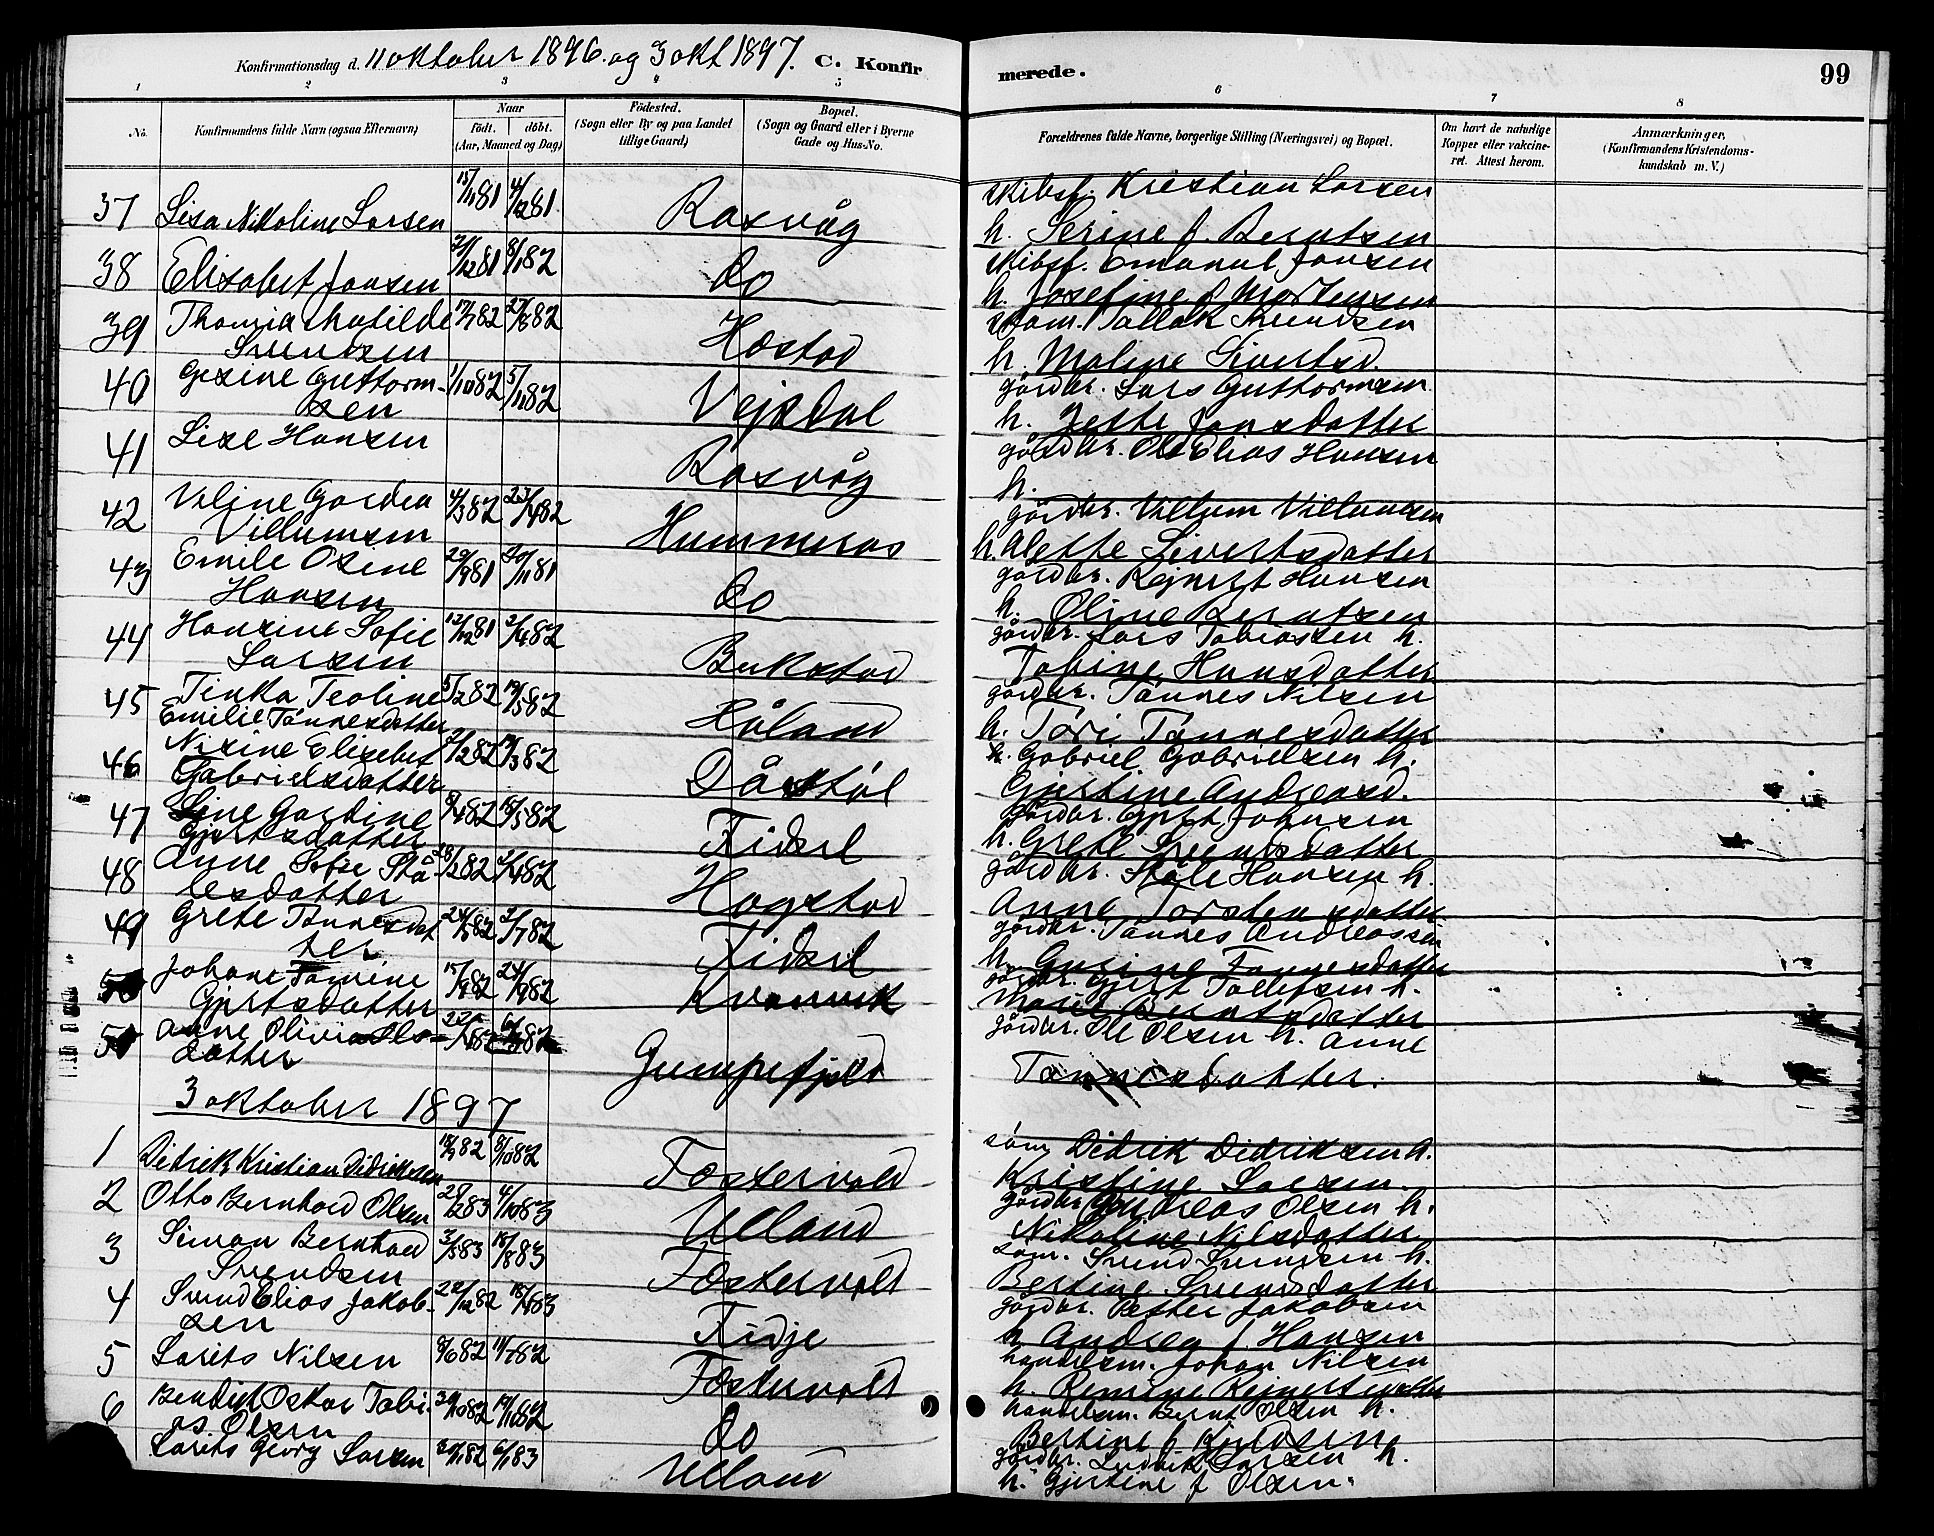 Konfirmationsdag d. 11 oktober 1896. og 3 okt 1897. C. Konfirmerede. 99
1 2 3 4 5 6 7 8
No.
Konfirmandens fulde Navn (ogsaa Efternavn)
Naar
født. døbt.
(Aar, Maaned og Dag)
Fødested.
(Sogn eller By og paa Landet tillige Gaard)
Bopæl.
(Sogn og Gaard eller i Byerne Gade og Hus-No.
Forældrenes fulde Navne, borgerlige Stilling (Næringsvei) og Bopæl.
Om havt de naturlige Kopper eller vakcineret. Attest herom.
Anmærkninger,
(Konfirmandens Kristendomskundskab m. V.)
37 Lisa Nikoline Larsen 15/11 81 4/12 81. Rasvåg
Skibsf. Kristian Larsen
h. Serine f. Berntsen
38 Elisabet Jansen 2/12 81 8/1 82 do
Skibsf. Emanuel Jansen
h. Josefine f Mortensen
39 Thomia Matilde Svendsen 17/7 82 27/8 82 Hæstad
Tallak Svendsen
h. Maline Sivertsd.
40 Gesine Guttormsen 1/10 82 5/11 82 Vejsdal
gårdbr. Lars Guttormsen.
h. Jette Jansdatter
41 Lise Hansen Rasvåg
gårdbr. Ole Elias Hansen
h.
42 Veline Gardea Villumsen 4/3 82 23/4 82 Hummeras
gårdbr. Villum Villumsen
h. Alette Sivertsdatter
43 Emile Osine Hansen 29/9 81 20/11 81 do
gårdbr. Rejnert Hansen
h. Oline Berntsen
44 Hansine Sofie Larsen 12/12 81 2/4 82 Bukstad
gårdbr. Lars Tobiassen h.
Tobine Hansdatter
45 Tinka Teoline Emilie Tønnesdatter 5/2 82 19/3 82 Håland
gårdbr. Tønnes Nilsen
h. Tøri Tønnesdatter
46 Nisine Elisebet Gabrielsdatter 82 82 Dåstøl
Gabriel Gabrielsen h.
Gjertine Andreasd.
47 Line Gardine Gjertsdatter 82 82 Fidsel
gårdbr. Gjert Johnsen
h. Grete Svendsdatter
48 Anne Sofie Ståлesdatter 28/2 82 2/4 82 Hagstad
gårdbr. Ståle Hansen h.
Anne Torstensdatter
49 Grete Tønnesdatter 82 2/7 82 Fidsel
gårdbr. Tønnes Andreassen
h. Gusine Tønnesdatter
50 Johane Tomine Gjertsdatter 15/9 82 24/9 82 Kvanvik
gårdbr. Gjert Tollefsen h.
Marie Berntsdatter
51 Anne Olivia Olsdatter 82 Gumpefjeld
gårdbr. Ole Olsen h. Anne
Tønnesdatter.
3 oktober 1897
1 Didrik Kristian Didriksen 82 8/10 82 Fostervold
søm. Didrik Didriksen h.
Kristine Larsen.
2 Otto Bernhard Olsen 83 4/10 83 Ulland
gårdbr. Andreas Olsen h.
Nikoline Nilsdatter
3 Simon Bernhard Svendsen 83 83 Fostervold
søm. Svend Svendsen h.
Bertine Svendsdatter
4 Svend Elias Jakobsen 82 83 Fidje
gårdbr. Petter Jakobsen
h. Andrea f. Hansen
5 Larits Nilsen 82 82 Fostervold
handelsm. Johan Nilsen
h. Remine Rejnertsdatter
6 Bendik Oskar Tobias. Olsen 82 82 do
handelsm. Bernt Olsen h.
Bertine f. Knudsen
Larits Georg Larsen 82 6/1 83 Ulland
gårdbr. Ludvik Larsen h.
h. Gjertine f Olsen.